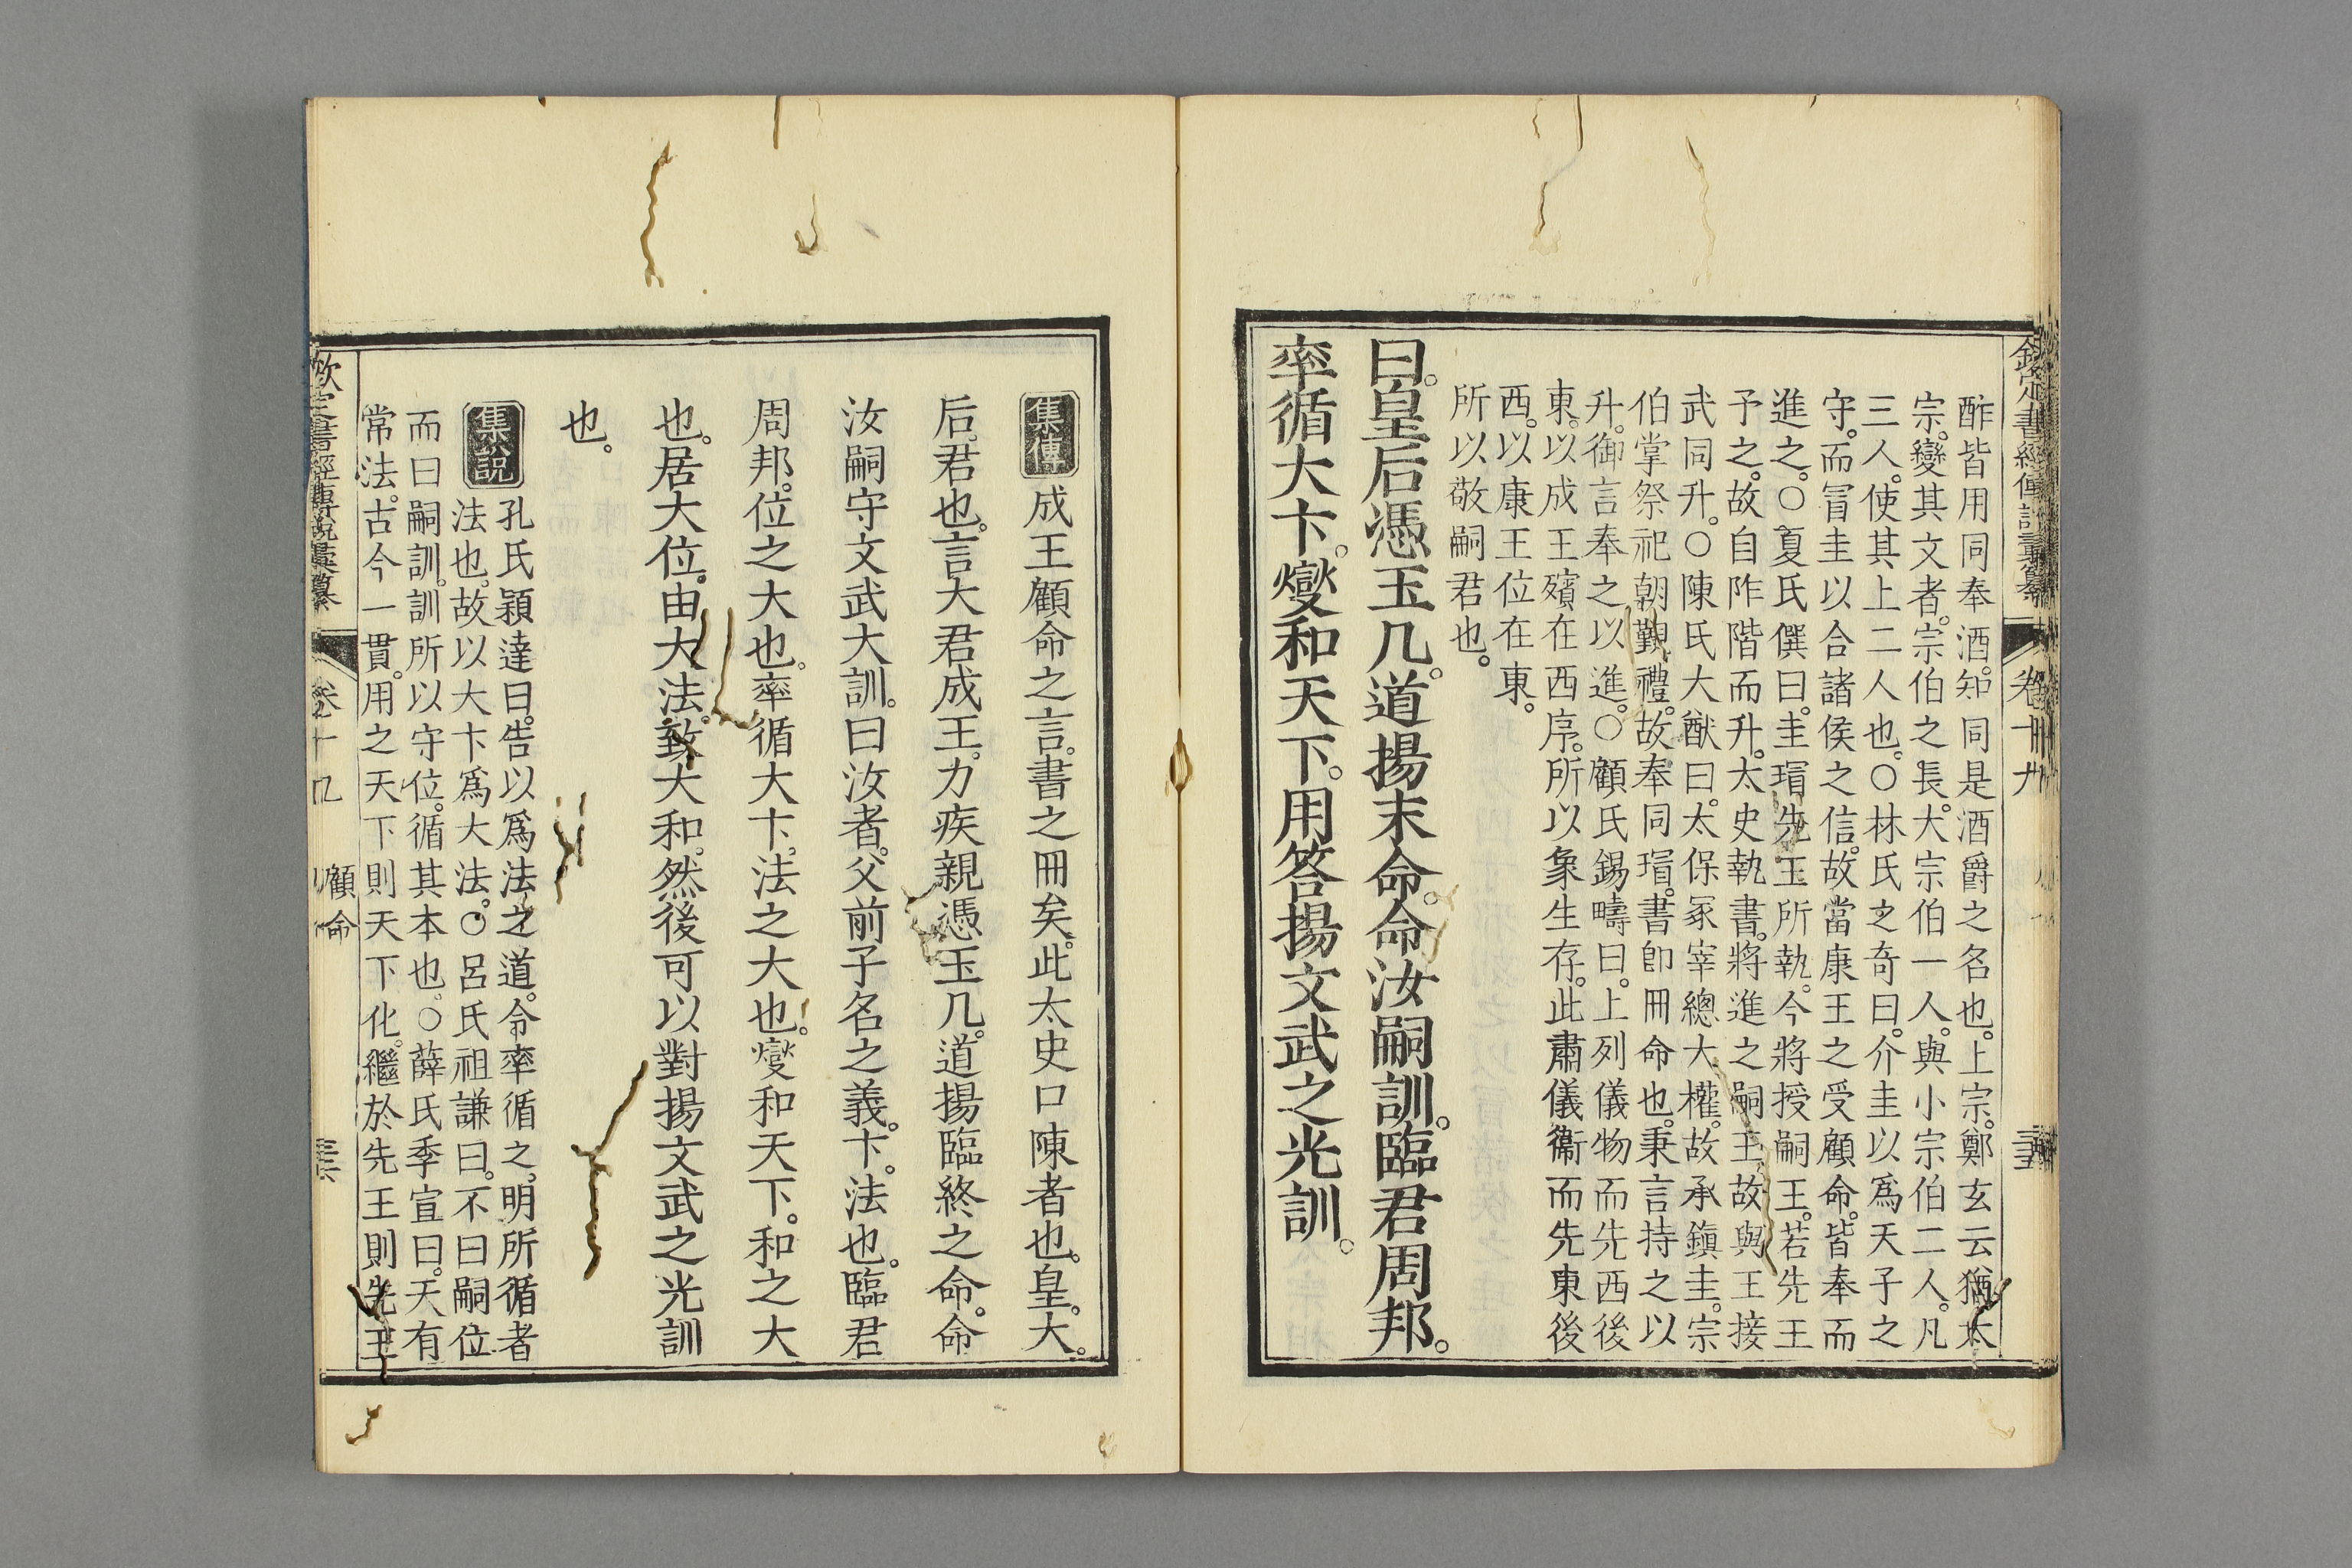 欽定書經傳說彙纂 卷十九
酢皆用同奉酒。知同是酒爵之名也。上宗。鄭玄云猶太
宗。變其文者。宗伯之長。大宗伯一人。與小宗伯二人。凡
三人。使其上二人也。○林氏之奇曰。介圭以爲天子之
守。而冒圭以合諸侯之信。故當康王之受顧命。皆奉而
進之。○夏氏僎曰。圭瑁先王所執。今將授嗣王。若先王
予之。故自阼階而升。太史執書。將進之嗣王。故與王接
武同升。○陳氏大猷曰。太保冢宰總大權。故承鎭圭。宗
伯掌祭祀朝覲禮。故奉同瑁。書卽冊命也。秉言持之以
升。御言奉之以進。○顧氏錫疇曰。上列儀物而先西後
東。以成王殯在西序。所以象生存。此肅儀衞而先東後
西。以康王位在東。
所以敬嗣君也。
曰。皇后憑玉几。道揚末命。命汝嗣訓。臨君周邦。
率循大卞。燮和天下。用答揚文武之光訓。
集傳 成王顧命之言。書之冊矣。此太史口陳者也。皇。大。
后。君也。言大君成王。力疾親憑玉几。道揚臨終之命。命
汝嗣守文武大訓。曰汝者。父前子名之義。卞。法也。臨君
周邦。位之大也。率循大卞。法之大也。燮和天下。和之大
也。居大位。由大法。致大和。然後可以對揚文武之光訓
也。
集說 孔氏穎達曰。告以爲法之道。令率循之。明所循者
法也。故以大卞爲大法。○呂氏祖謙曰。不曰嗣位
而曰嗣訓。訓所以守位。循其本也。○薛氏季宣曰。天有
常法。古今一貫。用之天下則天下化。繼於先王則先王
欽定書經傳說彙纂 卷十九 顧命